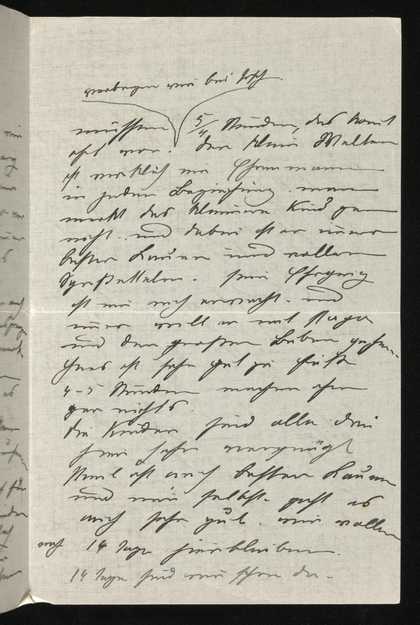 müssen 5/4 Stunden, das kommt
oft vor. Der kleine Walter
ist wirklich ein Ehrenmann
in jeder Beziehung. man
merkt das kleine Kind gar
nicht. und dabei ist er immer
bester Laune und voller
sein Ehrgeiz
ist erwacht. und
immer will er mit
und den großen Buben gehen.
ist sehr gut zu Fuß
4-5 Stunden machen ihm
gar nichts
Die Kinder sind alle drei
hier sehr vergnügt
ist auch bester Laune
und mir selbst geht es
auch sehr gut. wir wollen
noch 14 Tage hierbleiben.
14 Tage sind wir schon da.